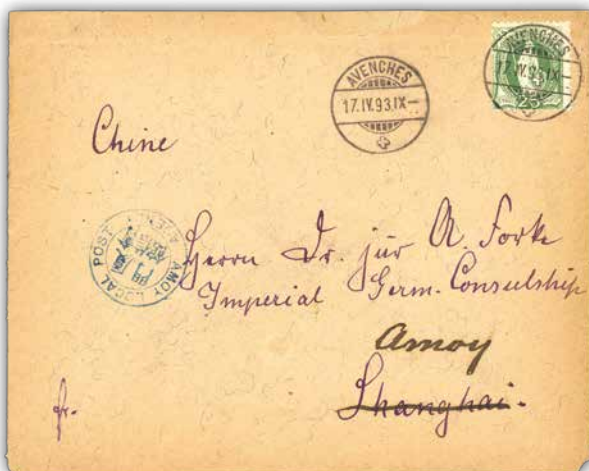 AVENCHES
17.IV.93.IX-
AVENCHES
17.IV.93.IX
25
Chine
AMOY LOCAL POST
Herrn Dr. jur A. Forke
Imperial Germ. Consulship
Amoy
Shanghai.
fr.